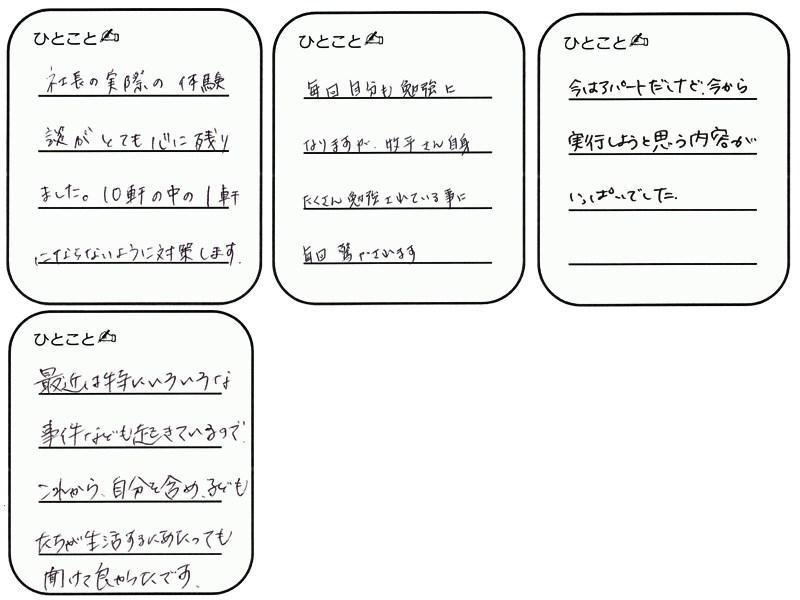 ひとこと
社長の実際の体験
談がとても心に残り
ました。10軒の中の1軒
にならないように対策します。
ひとこと
毎回自分も勉強に
なりますが、牧平さん自身
たくさん勉強されている事に
毎回驚かされます
ひとこと
今はアパートだけど、今から
実行しようと思う内容が
いっぱいでした。
ひとこと
最近は特にいろいろな
事件なども起きているので、
これから、自分を含め、子ども
たちが生活するにあたっても
聞けて良かったです。